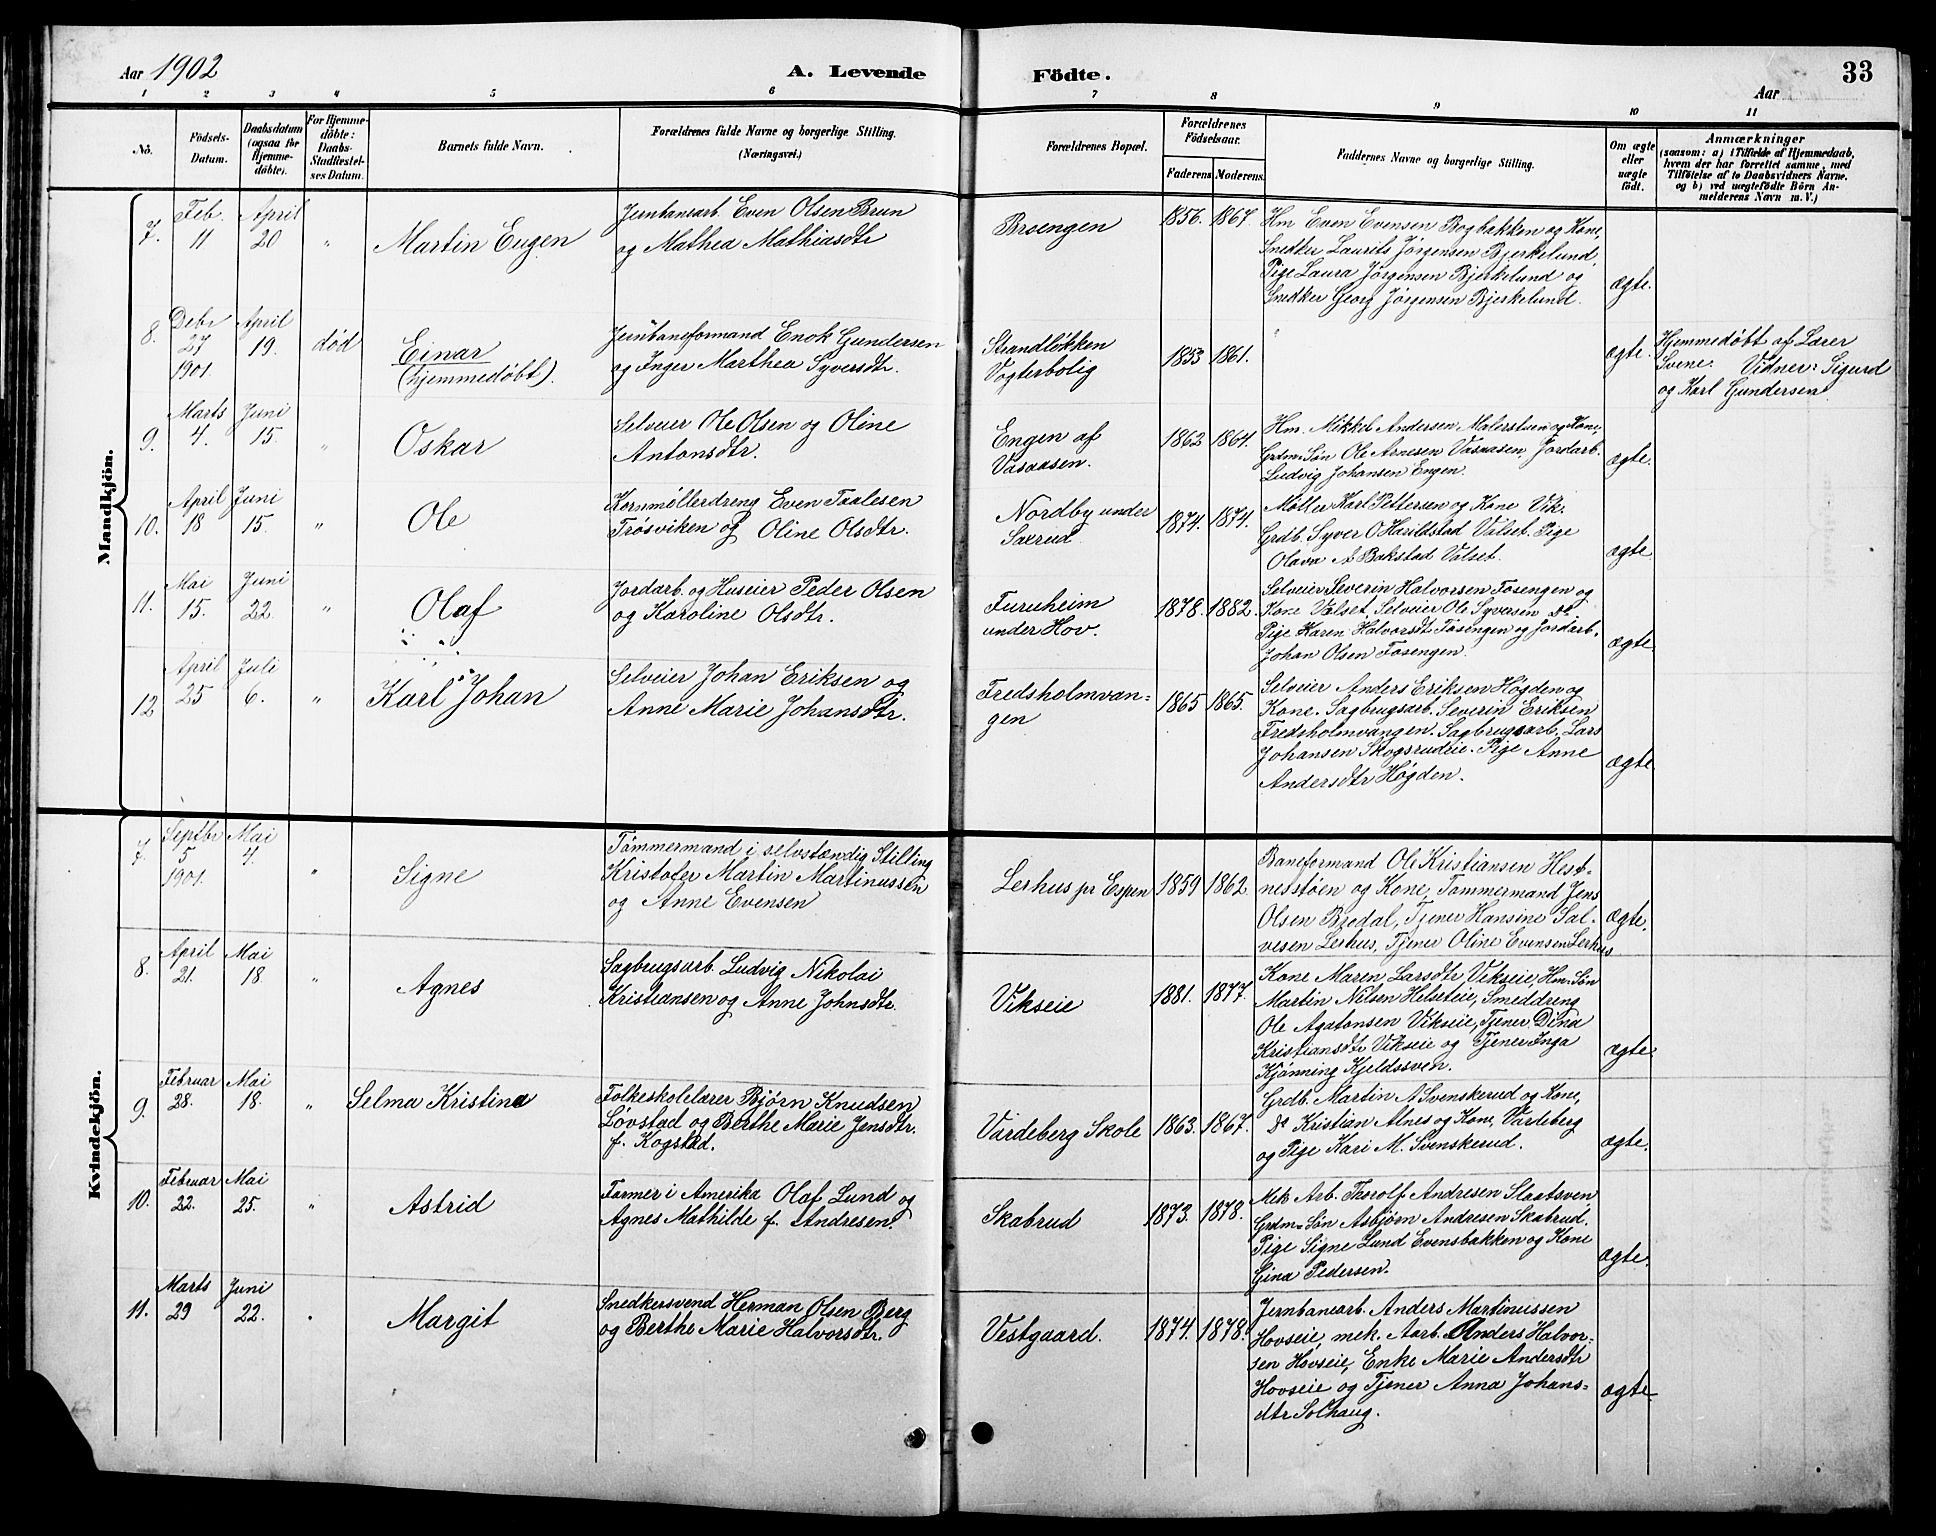 Aar 1902
A. Levende Födte.
33
Aar
1 2 3 4 5 6 7 8 9 10 11
No.
Födsels-
Datum.
Daabsdatum
(ogsaa för
Hjemme-
döbte).
For Hjemme-
döbte:
Daabs-
Stadfæstel-
ses Datum.
Barnets fulde Navn.
Forældrenes fulde Navne og borgerlige Stilling.
(Næringsvei.)
Forældrenes Bopæl.
Forældrenes
Födselsaar.
Faderens Moderens.
Faddernes Navne og borgerlige Stilling.
Om ægte
eller
uægte
födt.
Anmærkninger
(saasom: a) i Tilfælde af Hjemmedaab,
hvem der har forrettet samme, med
Tilföielse af to Daabsvidners Navne.
og b) ved uægtefödte Börn An-
melderens Navn m. V.)
Mandkjön.
7.
Feb.
11
April
20
"
Martin Eugen
Jernbanearb. Even Olsen Brun
og Mathea Mathiasdtr
Broengen
1856. 1867.
Hm Even Evensen Bogbakken og Kone,
Snedker Laurits Jørgensen Bjerkelund,
Pige Laura Jørgensen Bjerkelund og
Snedker Georg Jørgensen Bjerkelund.
ægte.
8.
Debr
27
1901.
April
19.
død
Einar
(hjemmedøbt).
Jernbaneformand Enok Gundersen
og Inger Marthea Syversdtr.
Strandløkken
Vogterbolig
1853 1861.
ægte.
Hjemmedøbt af Lærer
Svene. Vidner: Sigurd
og Karl Gundersen.
9.
Marts
4.
Juni
15.
"
Oskar
Selveier Ole Olsen og Oline
Antonsdtr.
Engen af
Vasaasen.
1862 1864.
Hm. Mikkel Andersen Malerstuen og Kone,
Grdm. Søn Ole Arnesen Vasaasen, Jordarb.
Ludvig Johansen Engen.
ægte.
10.
April
18
Juni
15.
"
Ole
Kornmøllerdreng Even Taalesen
Trøsviken og Oline Olsdtr.
Nordby under
Saxrud
1874. 1874.
Møller Karl Pettersen og Kone Vik.
Grdb. Syver O Harildstad Valset. Pige
Olava A Bakstad Valset.
ægte
11.
Mai
15.
Juni
22.
"
Olaf
Jordarb. og Huseier Peder Olsen
og Karoline Olsdtr.
Furuheim
under Hov.
1878. 1882.
Selveier Severin Halvorsen Fosengen og
Kone Valset, Selveier Ole Syversen do
Pige Karen Halvorsdtr Fosengen og Jordarb.
Johan Olsen Fosengen.
ægte
12
April
25
Juli
6.
"
Karl Johan
Selveier Johan Eriksen og
Anne Marie Johansdtr.
Fredsholmvan-
gen
1865 1865.
Selveier Anders Eriksen Høgden og
Kone. Sagbrugsarb. Severin Eriksen
Fredsholmvangen. Sagbrugsarb. Lars
Johansen Skogsrudeie. Pige Anne
Andersdtr Høgden.
ægte
Kvindekjön.
7.
Septbr
5
1901.
Mai
4.
"
Signe
Tømmermand i selvstændig Stilling
Kristofer Martin Martinussen
og Anne Evensen
Lerhus pr Espen
1859 1862
Baneformand Ole Kristiansen Hest-
nesstøen og Kone, Tømmermand Jens
Olsen Bredal, Tjener Hansine Sal-
vesen Lerhus, Tjener Oline Evensen Lerhus
ægte.
8.
April
21.
Mai
18
"
Agnes
Sagbrugsarb. Ludvig Nikolai
Kristiansen og Anne Johnsdtr.
Vikseie
1881. 1877.
Kone Maren Larsdtr Vikseie, Hm.Søn
Martin Nilsen Helseteie, Smeddreng
Ole Agatonsen Vikseie, Tjener Dina
Kristiansdtr Vikseie og Tjener Inga
Kjønning Kjeldssven.
ægte
9.
Februar
28.
Mai
18.
"
Selma Kristine
Folkeskolelærer Bjørn Knudsen
Løvstad og Berthe Marie Jensdtr.
f. Kogstad.
Vardeberg Skole
1863. 1867.
Grdb. Martin A Svenskerud og Kone,
do Kristian Alnes og Kone, Vardeberg
og Pige Kari M. Svenskerud.
ægte.
10.
Februar
22.
Mai
25.
"
Astrid
Farmer i Amerika Olaf Lund og
Agnes Mathilde f. Andresen.
Skabrud
1873. 1878.
Mek Arb. Thorolf Andresen Slaatsven
Grdm=Søn Asbjørn Andresen Skabrud.
Pige Signe Lund Evensbakken og Kone
Gina Pedersen.
ægte.
11.
Marts
29
Juni
22.
"
Margit
Snedkersvend Herman Olsen Berg
og Berthe Marie Halvorsdtr.
Vestgaard.
1874. 1878.
Jernbanearb. Anders Martinussen
Hovseie, mek. Aarb. Anders Halvor-
sen Hovseie, Enke Marie Andersdtr
Hovseie og Tjener Anna Johans-
dtr Solhaug.
ægte